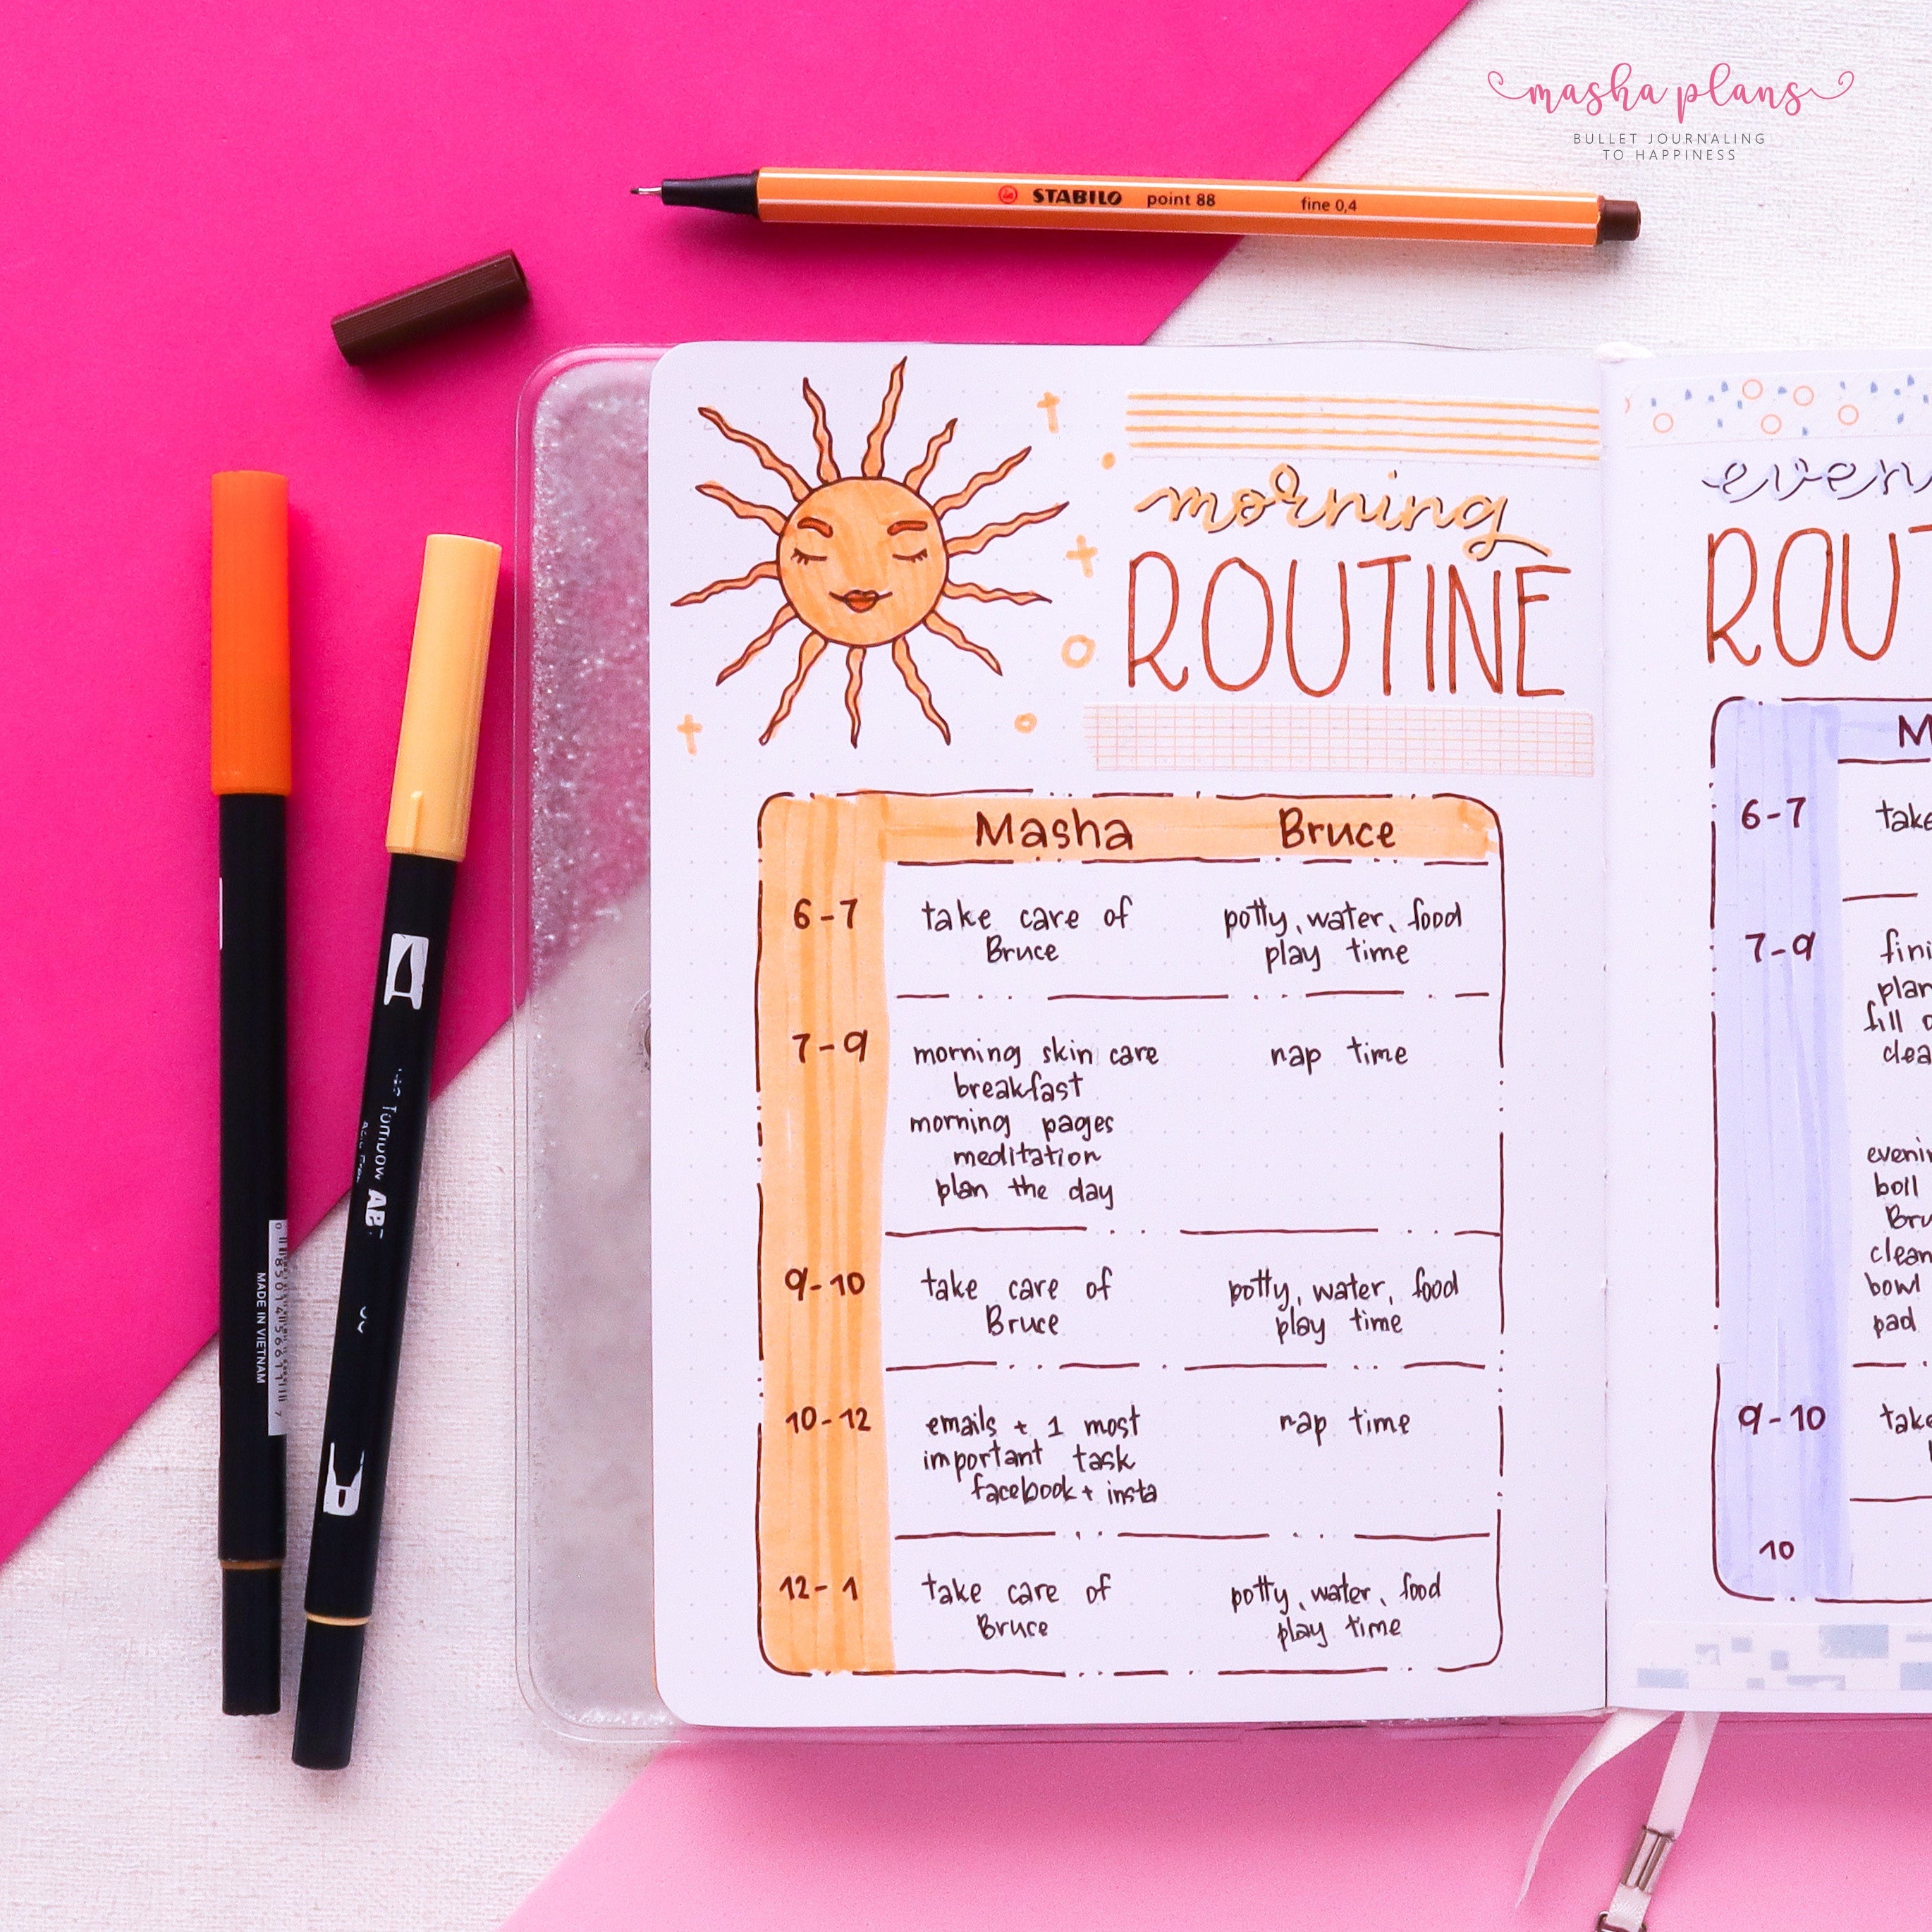 masha plans
BULLET JOURNALING
TO HAPPINESS
STABILO point 88 fine 0,4
morning
ROUTINE
Masha Bruce
6-7 take care of potty, water, food
Bruce play time
7-9 morning skin care nap time
breakfast
morning pages
meditation
plan the day
9-10 take care of potty, water, food
Bruce play time
10-12 emails + 1 most nap time
important task
facebook + insta
12-1 take care of potty, water, food
Bruce play time
even
ROUT
M
6-7 take
7-9 fini
plan
fill
clea
evenin
boil
Bru
clean
bowl
pad
9-10 take
10
Tombow AB
MADE IN VIETNAM